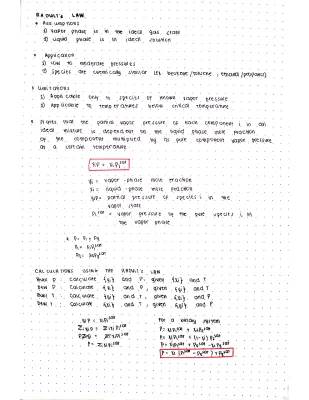 RAOULT'S LAW
* Assumptions
1) Vapor phase is in the ideal gas state
2) Liquid phase is in ideal solution
* Application
1) Low to moderate pressures
2) Species are chemically similar (ex benzene/toluene, ethanol/propanol)
* Limitations
1) Applicable only to species of known vapor pressure
2) Applicable to temperatures below critical temperature
* States that the partial vapor pressure of each component i in an
ideal mixture is dependent on the liquid phase mole fraction
of the component multiplied by its pure component vapor pressure
at a certain temperature
yiP = xiPi^sat
yi = vapor-phase mole fraction
xi = liquid-phase mole fraction
yiP = partial pressure of species i in the
vapor state
Pi^sat = vapor pressure of the pure species i, in
the vapor phase
* P = P1 + P2
P1 = x1P1^sat
P2 = x2P2^sat
CALCULATIONS USING THE RAOULT'S LAW
BUBL P : Calculate {yi} and P, given {xi} and T
DEW P : Calculate {xi} and P, given {yi} and T
BUBL T : Calculate {yi} and T, given {xi} and P
DEW T : Calculate {xi} and T, given {yi} and P
yiP = xiPi^sat
ΣyiP = ΣxiPi^sat
PΣyi = ΣxiPi^sat
P = ΣxiPi^sat
For a binary system
P = x1P1^sat + x2P2^sat
P = x1P1^sat + (1-x1) P2^sat
P = x1P1^sat + P2^sat - x1P2^sat
P = x1 (P1^sat - P2^sat) + P2^sat